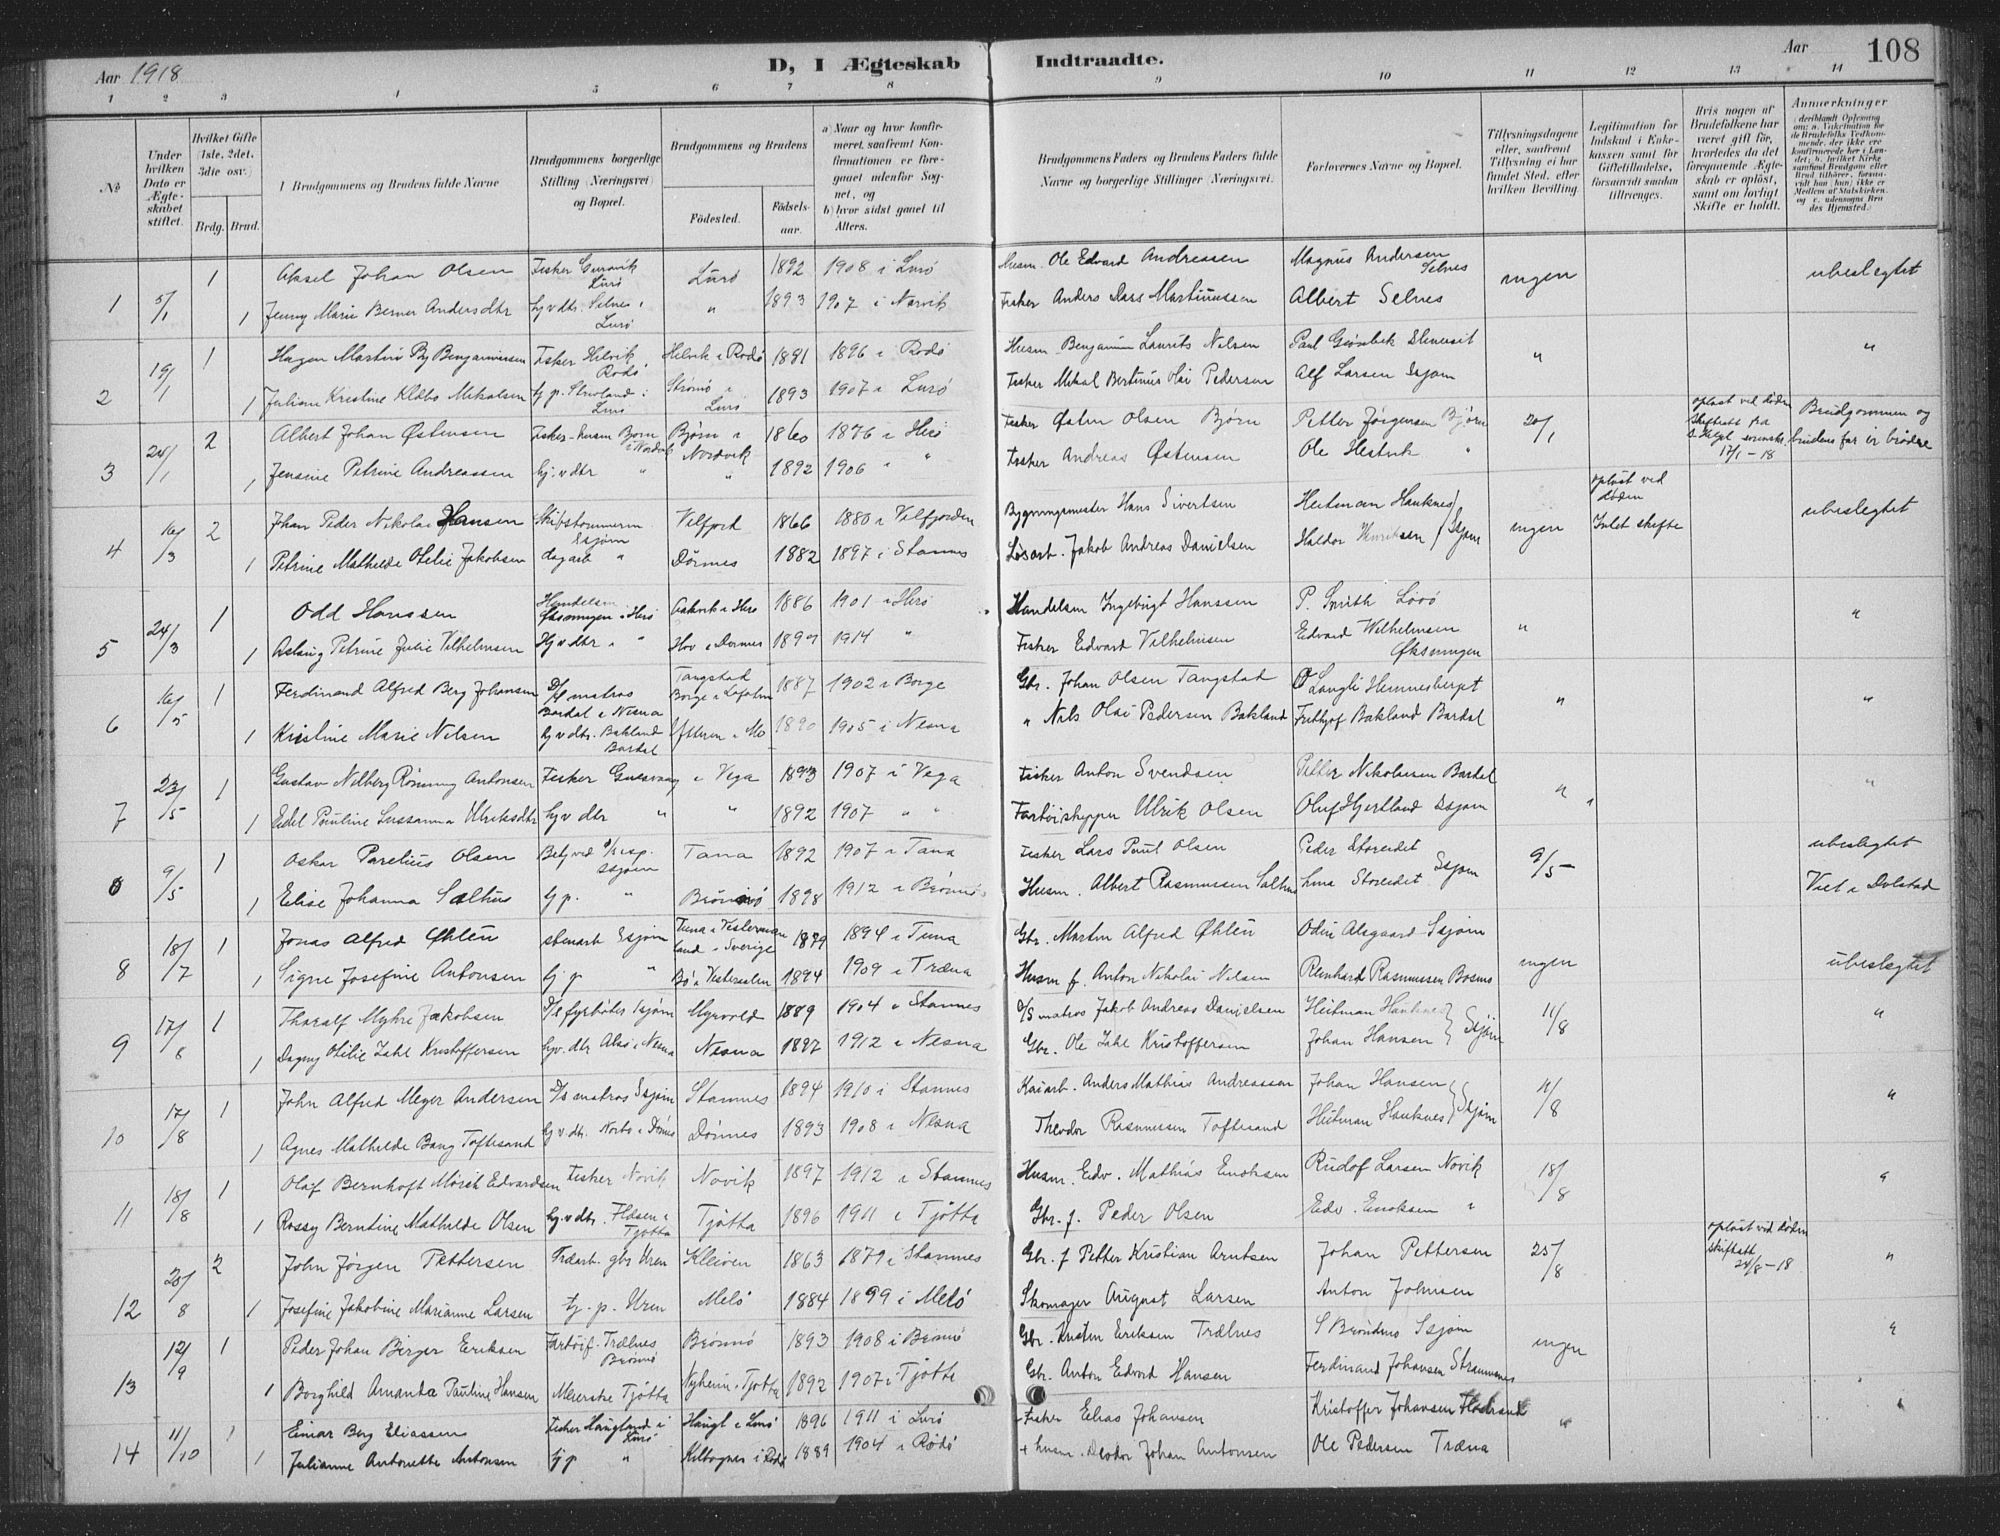 Aar 1918
D, I Ægteskab Indtraadte.
Aar 108
1 2 3 4 5 6 7 8 9 10 11 12 13 14
No
Under hvilken Dato er Ægteskabet stiftet.
Hvilket Gifte (1ste, 2det, 3die osv.)
Brdg. Brud.
Brudgommens og Brudens fulde Navne
Brudgommens borgerlige Stilling (Næringsvei) og Bopæl.
Brudgommens og Brudens
Fødested. Fødselsaar.
a) Naar og hvor konfirmeret, saafremt Konfirmationen er foregaaet udenfor Sognet, og
b) hvor sidst gaaet til Alters.
Brudgommens Faders og Brudens Faders fulde Navne og borgerlige Stillinger (Næringsvei).
Forlovernes Navne og Bopæl.
Tillysningsdagene eller, saafremt Tillysning ei har fundet Sted, efter hvilken Bevilling.
Legitimation for Indskud i Enkekassen samt for Giftetilladelse, forsaavidt saadan tiltrænges.
Hvis nogen af Brudefolkene har været gift før, hvorledes da det foregaaende Ægteskab er opløst, samt om lovligt Skifte er holdt.
Anmærkninger
1 5/1 1 Aksel Johan Olsen Fisker Lurø Lurø 1892 1908 i Lurø Husm. Ole Edvard Andreasen Magnus Andersen Selnes ingen ubeslegtet
1 Jenny Marie Berner Andersdtr hjv dtr. Selnes i Lurø " 1893 1907 i Narvik Fisker Anders Lars Martinussen Albert Selnes
2 19/1 1 Hagen Martin By Benjaminsen Fisker Helvik Rødø Helvik i Rødø 1881 1896 i Rødø Husm. Benjamin Laurits Nilsen Paul " "
1 Juliane Kristine Klæbo Mikalsen i Lurø Strømø i Lurø 1893 1907 i Lurø Fisker Mikal Bertinus Olai Pedersen Alf Larsen Ssjøen
3 24/1 2 Albert Johan Østensen Fisker-husm Bjørn i Nordvik Bjørn i Nordvik 1860 1876 i Herø Fisker Østen Olsen Bjørn Petter Jørgensen Bjørn 20/1 opløst ved døden skifteatt fra 17/1-18 Brudgommen og brudens far er brødre
1 Jensine Petrine Andreassen hjv dtr " " 1892 1906 " " Fisker Andreas Østensen Ole Hestvik "
4 16/3 2 Johan Peder Nikolai Hansen Skibstømmerm. Ssjøen Velfjord 1866 1880 i Velfjorden Bygningsmester Hans Sivertsen Heitman Hauknes ingen opløst ved døden Intet skifte ubeslegtet
1 Petrine Mathilde Otilie Jakobsen dagarb " Dønnes 1882 1897 i Stamnes Løsarb. Jakob Andreas Danielsen Haldor Henriksen Ssjøen
5 24/3 1 Odd Hanssen Handelsm. i Herø i Herø 1886 1901 i Herø Handelsm Ingebrigt Hanssen P. Smith Lovø " "
1 Aslaug Petrine Julie Vilhelmsen Hjv dtr " Hov i Dønnes 1897 1914 " Fisker Edvard Vilhelmsen Edvard Wilhelmsen Øksningen
6 16/5 1 Ferdinand Alfred Berg Johansen D/S matros Bardal i Nesna Tangstad Borge i Lofoten 1887 1902 i Borge Gbr. Johan Olsen Tangstad O Langli Hemnesberget " "
1 Kristine Marie Nilsen hjv dtr. Bakland Bardal Ytteren i Mo 1890 1905 i Nesna " Nils Olai Pedersen Bakland Frithjof Bakland Bardal
7 23/5 1 Gustav Nilberg Rønning Antonsen Fisker i Vega 1893 1907 i Vega Fisker Anton Svendsen Petter Nikolaisen Bardal " "
1 Eidel Pauline Susanna Ulriksdtr hjv dtr " " 1892 1907 " " Fartøiskipper Ulrik Olsen Oluf Hjertland Ssjøen
9/5 1 Oskar Parelius Olsen Ssjøen Tana 1892 1907 i Tana Fisker Lars Paul Olsen Peder Storeidet Ssjøen 9/5 – ubeslegtet
1 Elise Johanna Salhus tj p. " Brønnø 1898 1912 i Brønnø Husm. Albert Rasmussen Salhus Lina Storeidet Viet i Dolstad
8 18/7 1 Jonas Alfred Øhlén stenarb Ssjøen Tuna i Vesternorrland i Sverige 1879 1894 i Tuna Gbr. Martin Alfred Øhlén Odin Alsgaard Ssjøen ingen ubeslegtet
1 Signe Josefine Antonsen tj p " Bø i Vesteraalen 1894 1909 i Træna Husm f. Anton Nikolai Nilsen Reinhard Rasmussen Bosmo
9 17/8 1 Tharalf Myhre Jakobsen D/S fyrbøter Ssjøen Myrvold 1889 1904 i Stamnes D/S matros Jakob Andreas Danielsen Heitman Hauknes 11/8 "
1 Dagny Otilie Zahl Kristoffersen hjv. dtr i Nesna Nesna 1897 1912 i Nesna Gbr. Ole Zahl Kristoffersen Johan Hansen Ssjøen
10 17/8 1 John Alfred Meyer Andersen D/S matros Ssjøen Stamnes 1894 1910 i Stamnes Kaiarb. Anders Mathias Andreassen Johan Hansen 11/8 "
1 Agnes Mathilde Bang Toftesand hjv dtr. i Dønnes Dønnes 1893 1908 i Nesna Theodor Rasmussen Toftesand Heitman Hauknes Ssjøen
11 18/8 1 Olaf Bernhoft Mørch Edvardsen Fisker Novik Novik 1897 1912 i Stamnes Husm. Edv. Mathias Enoksen Rudof Larsen Novik 18/8 "
1 Rossy Berntine Mathilde Olsen hjv dtr. i Tjøtta Tjøtta 1896 1911 i Tjøtta Gbr. f. Peder Olsen Edv. Enoksen "
12 20/8 2 John Jørgen Pettersen Træarb. gbr Uren Kleiven 1863 1879 i Stamnes Gbr. f Petter Kristian Arntsen Johan Pettersen 25/8 opløst ved døden skifteatt 24/8-18 "
1 Josefine Jakobine Marianne Larsen tj. p. Uren Melø 1884 1899 i Melø Skomager August Larsen Anton Johnsen
13 12/9 1 Peder Johan Birger Eriksen Trælnes Brønnø Brønnø 1893 1908 i Brønnø Gbr. Kristen Eriksen Trælnes S Brøndmo Ssjøen ingen "
1 Borghild Amanda Pauline Hansen Meierske Tjøtta Nyheim i Tjøtta 1892 1907 i Tjøtta Gbr. Anton Edvard Hansen Ferdinand Johansen
14 11/10 1 Einar Berg Eliassen Fisker Haugland i Lurø Haugl i Lurø 1896 1911 i Lurø Fisker Elias Johansen Kristoffer Johansen " "
1 Julianne Antonette Antonsen tj p " i Rødø 1889 1904 i Rødø husm. Johan Antonsen Ole Pedersen Træna